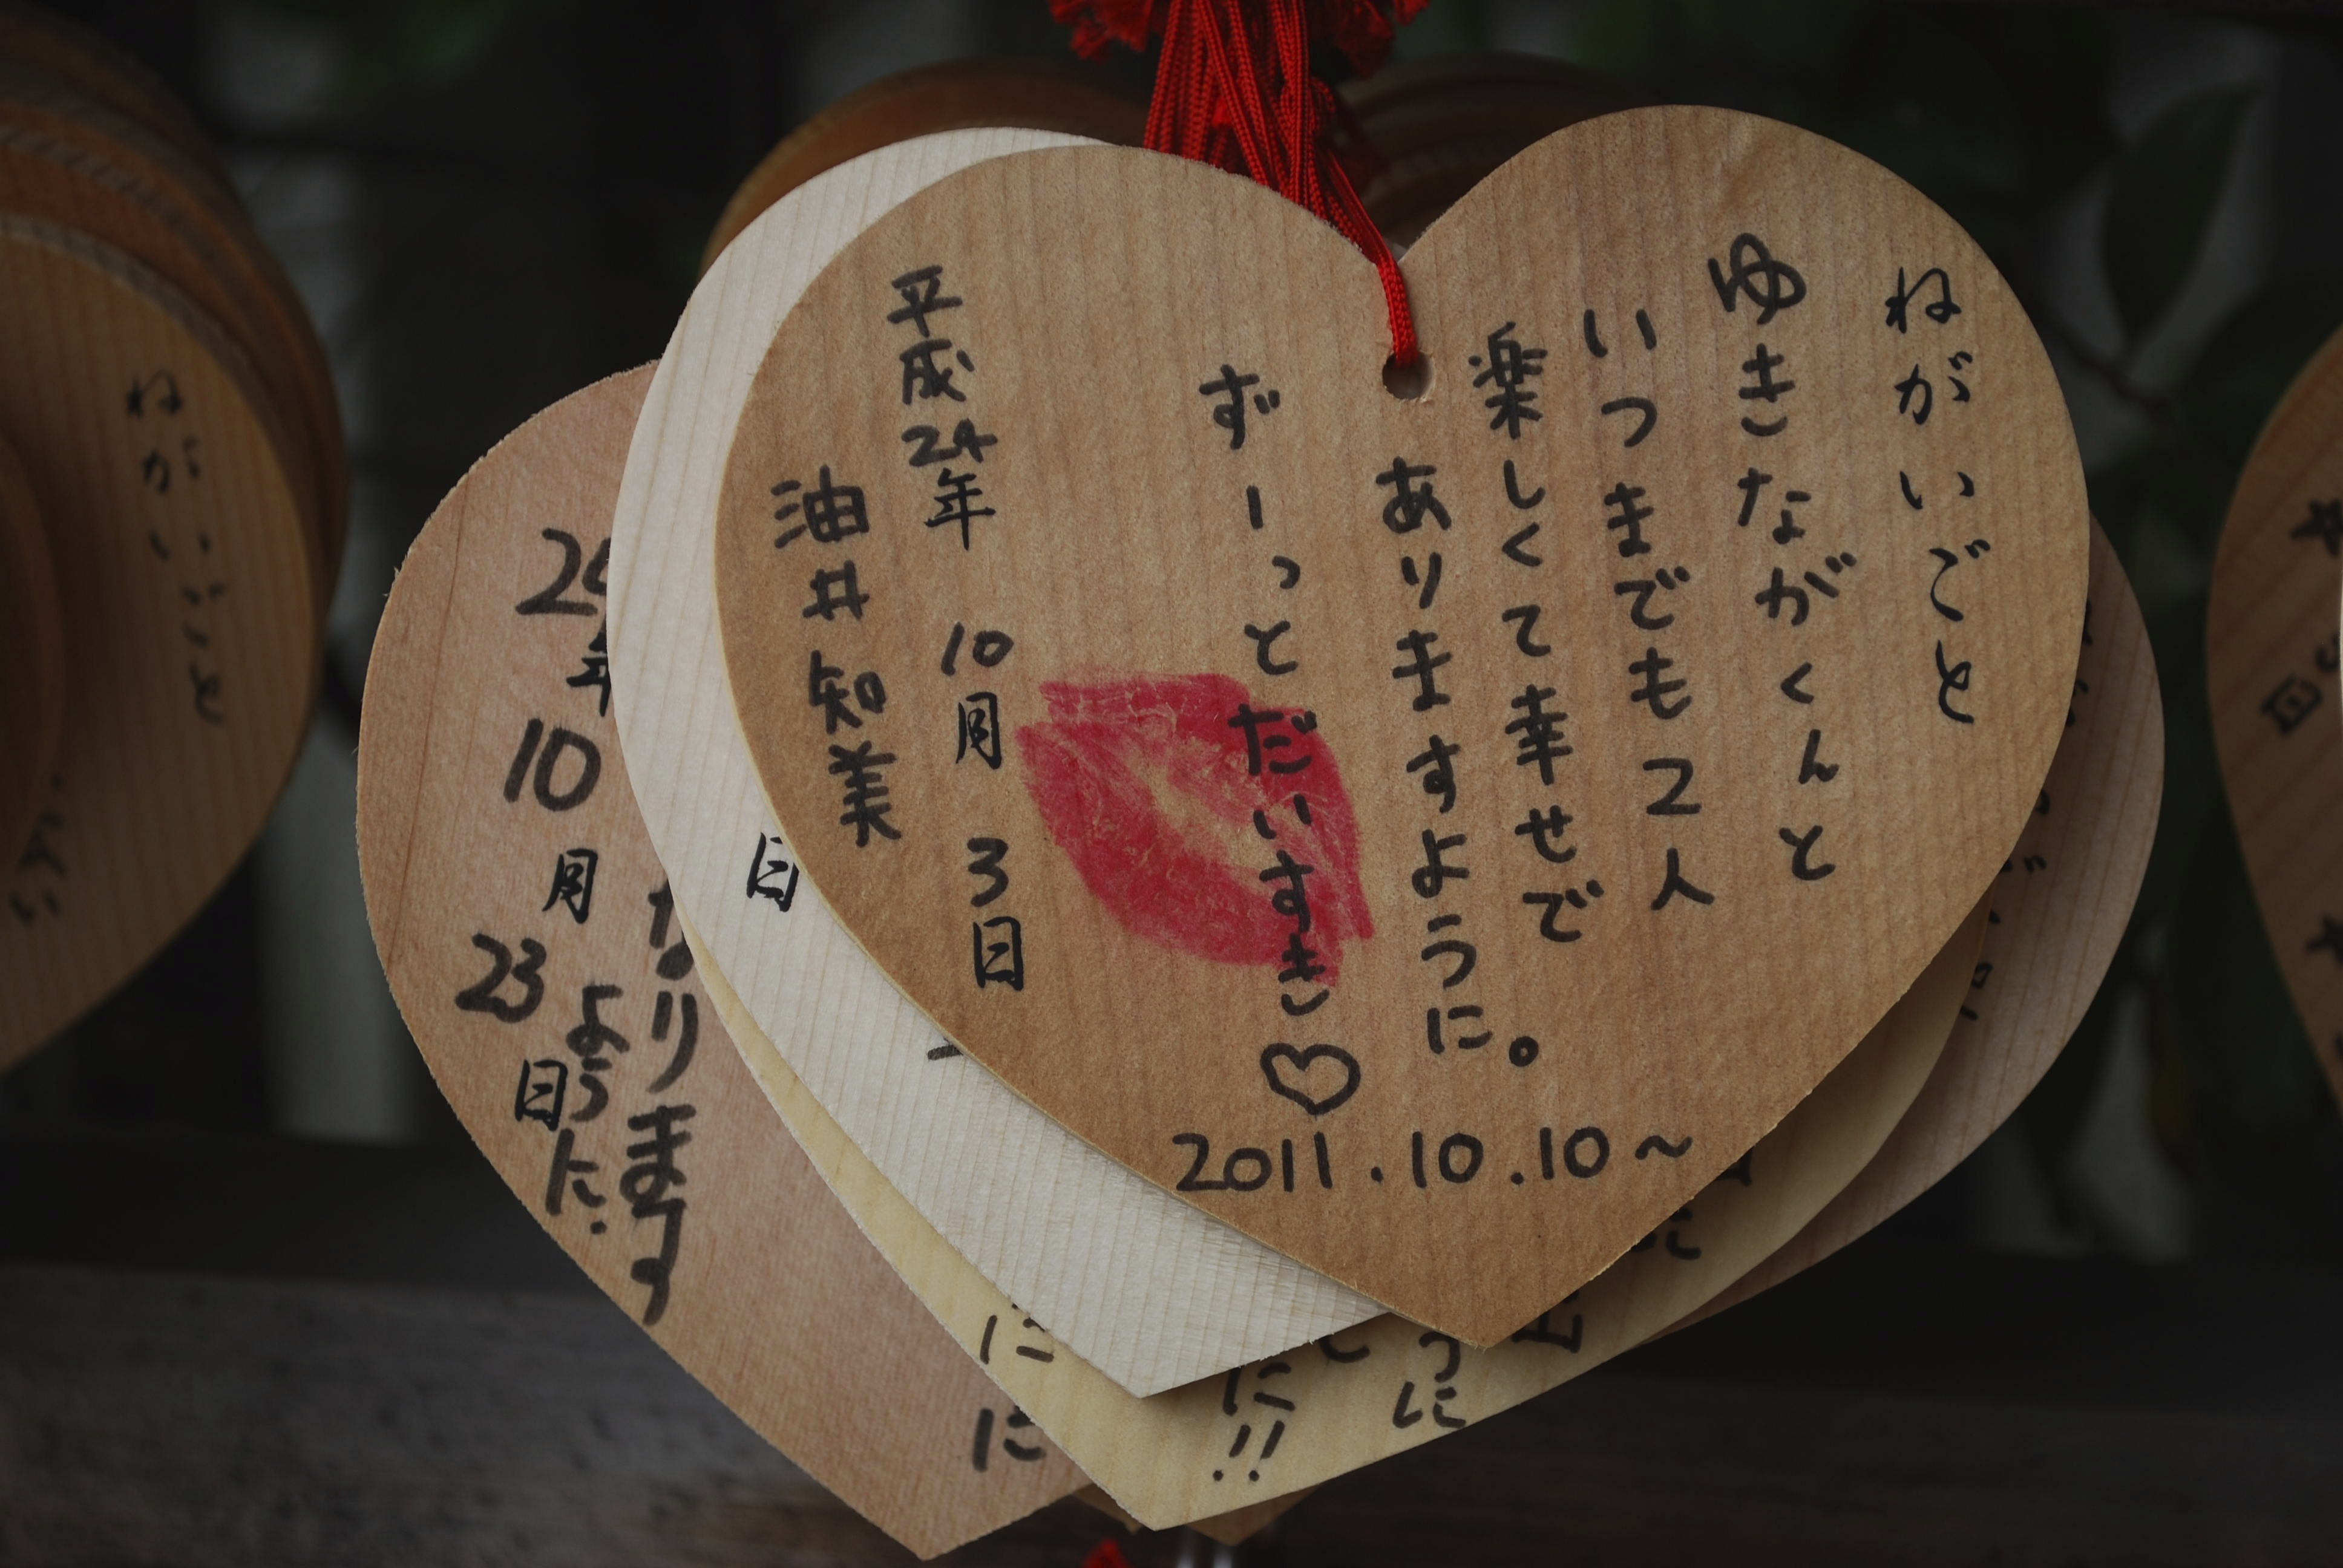 ねがいごと
ゆきながくんと
いつまでも2人
楽しくて幸せで
ありますように。
ずーっとだいすき♡
2011.10.10~
平成24年 10月 3日
油井知美
日
年
10月
23日
なります
ように
に
に
に!!
うに
ねがいごと